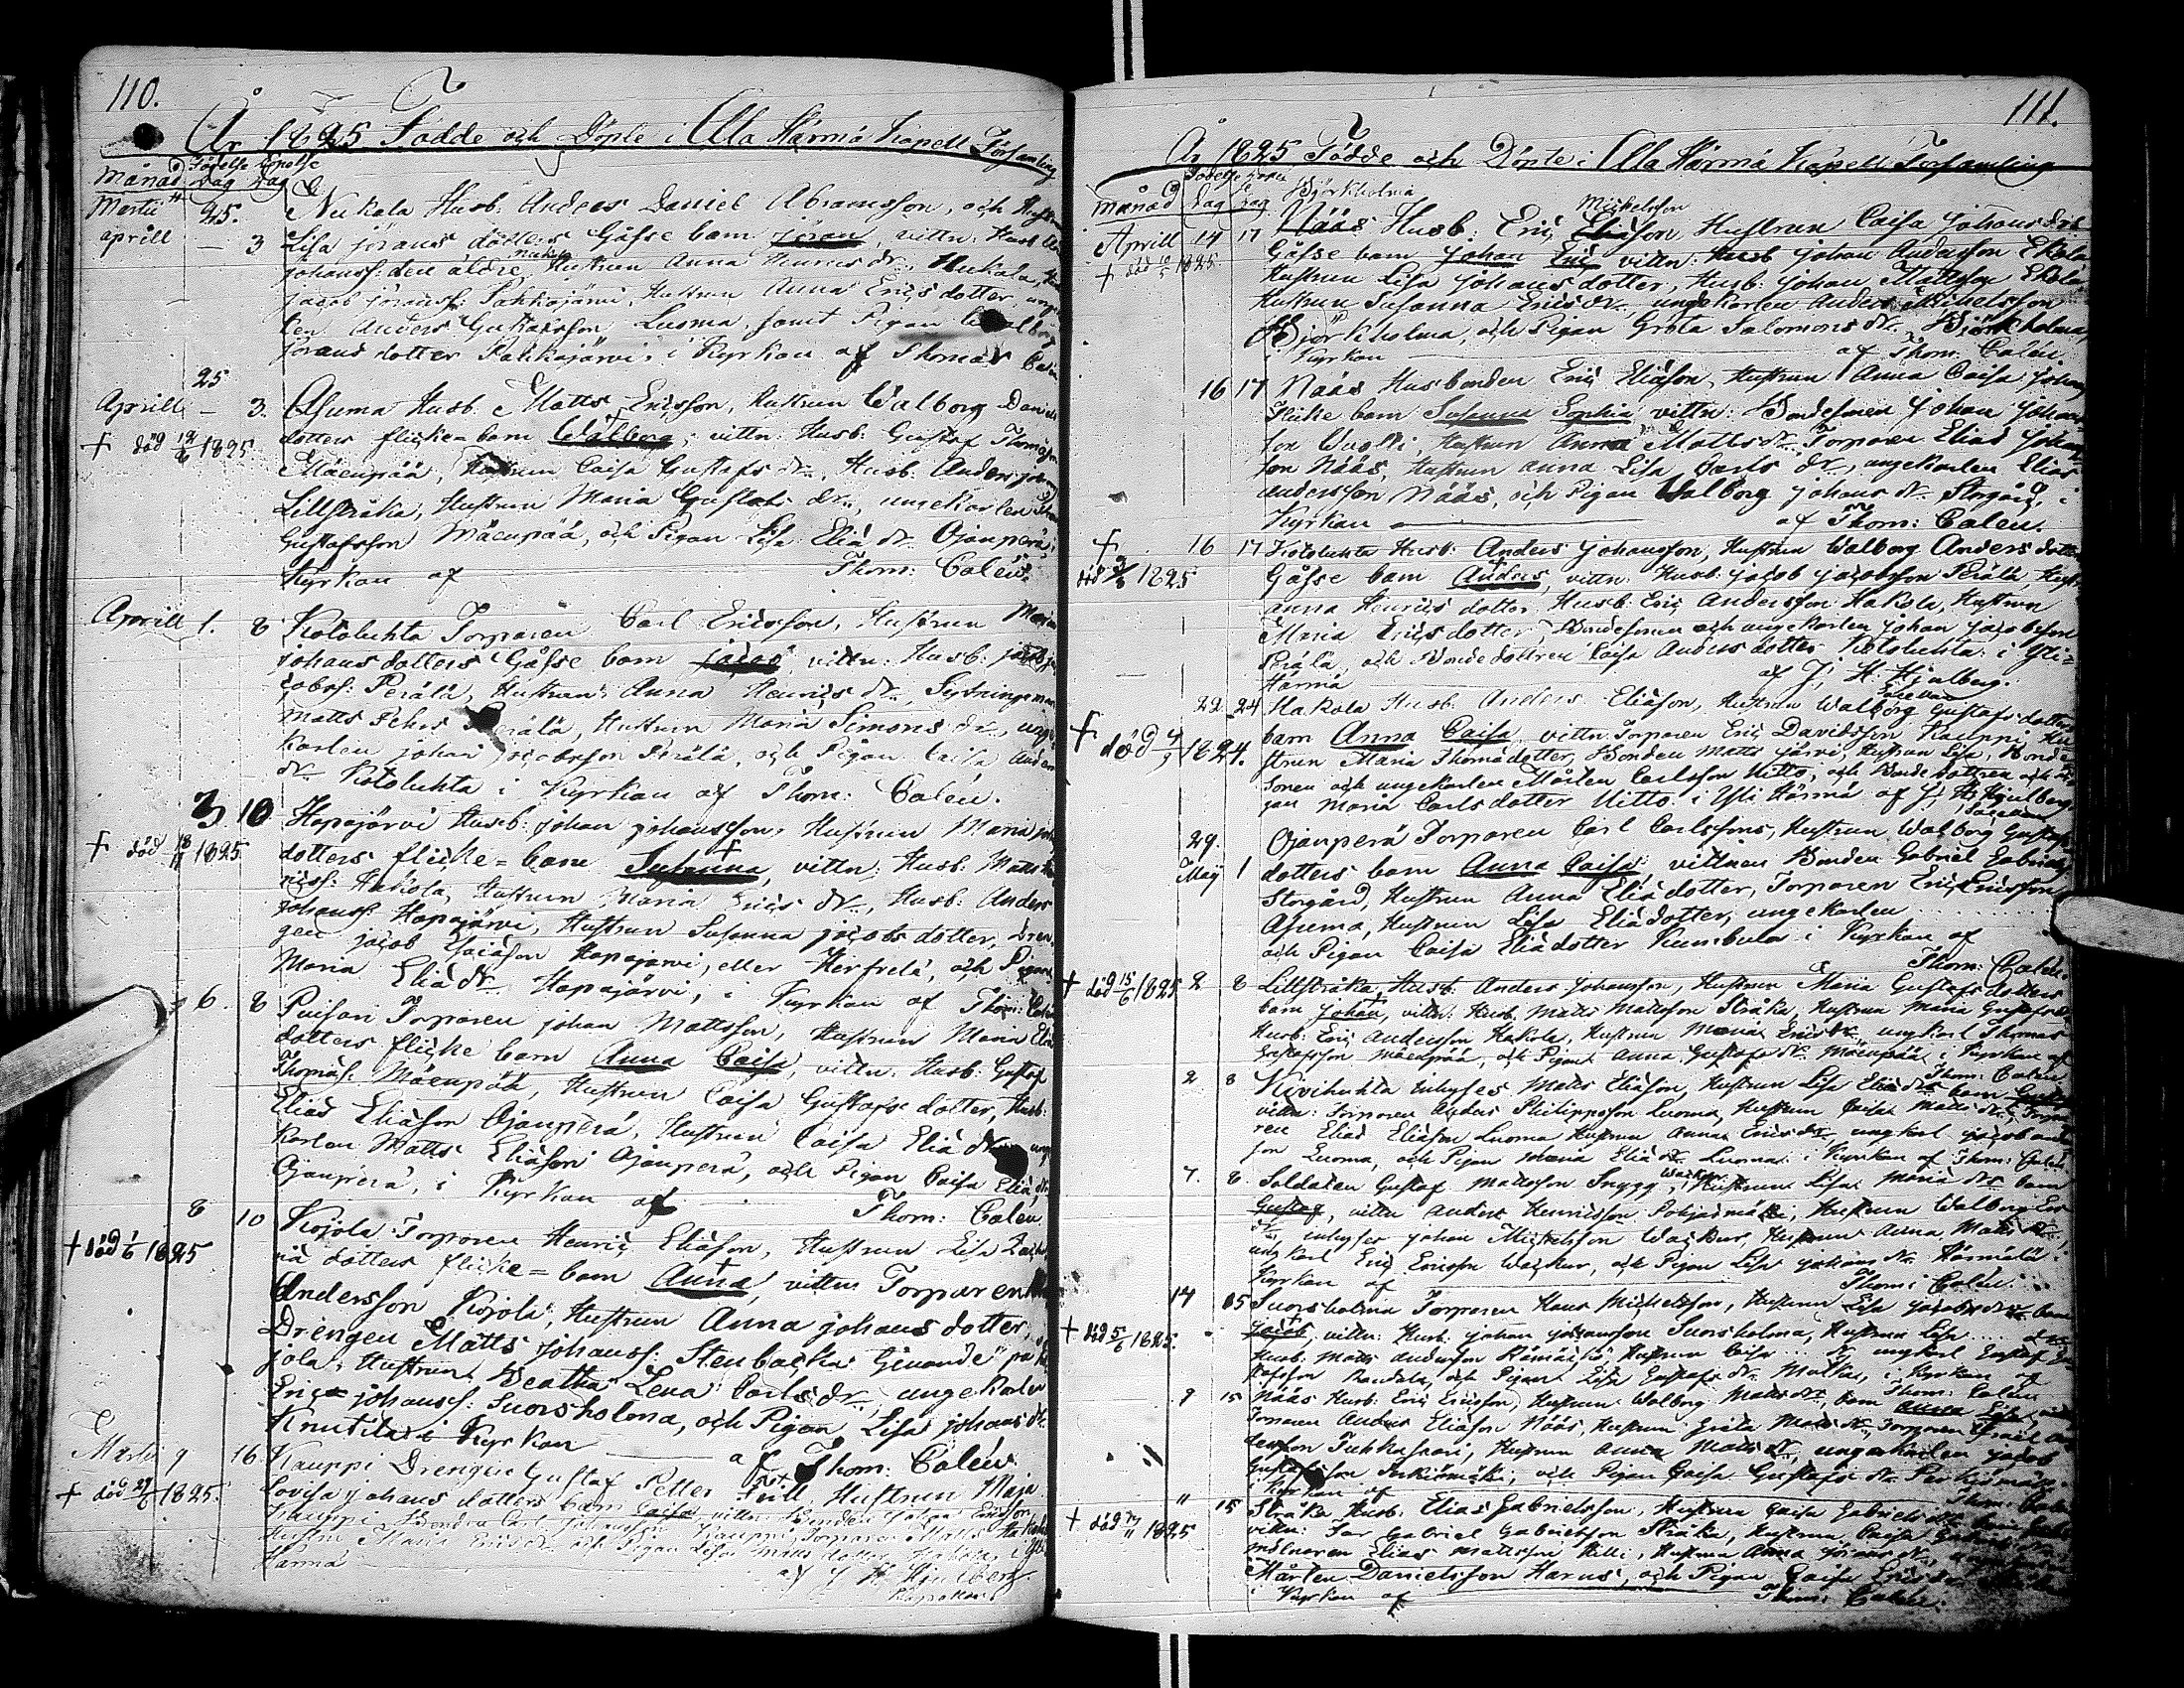 110.
År 1825 Födde och Döpte i Alla Härmä Kapell Församling
Månad Födelse Dag Döpelse Dag
Martii 25. Nukala Husb. Anders Daniel Abramsson, och Hustrun
Aprill — 3 Lisa Jörans dotters Gåsse barn Jöran, vittn: Husb.
Johanss: den äldre Nukala, Hustrun Anna Henrics dr, Nukala,
Jacob Jöranss: Pahkajärvi, Hustrun Anna Erics dotter, unge
len Anders Gustafsson Luoma, samt Pigan Walborg
Jörans dotter Pahkajärvi, i Kyrkan af Thomas Calen
25
Aprill — 3. Asuma Husb. Matts Ericsson, Hustrun Walborg Daniels
+ död 12/6 1825 dotters flicke-barn Walborg, vittn: Husb: Gustaf Thomasson
Mäenpää, Hustrun Caisa Gustafs dr, Husb. Anders Johans
Lillstråka, Hustrun Maria Gustafs dr, ungekarlen
Gustafsson Mäenpää, och Pigan Lisa Elia dr Ojanperä i
Kyrkan af Thom: Calén.
Aprill 1. 8 Kotoluhta Torparen Carl Ericsson, Hustrun Maria
Johans dotters Gåsse barn Jacob, vittn: Husb: Jacob
cobss: Perälä, Hustrun Anna Henrics dr, Sytningsman
Matts Pehrs Perälä, Hustrun Maria Simons dr, unge
Karlen Johan Jacobsson Perälä, och Pigan Caisa Anders
dr Kotoluhta i Kyrkan af Thom: Calén.
3 10 Hapajärvi Husb: Johan Johansson, Hustrun Maria
+ död 18/11 1825 dotters flicke-barn Susanna, vittn: Husb: Matts
ricss: Hakola, Hustrun Maria Erics dr, Husb: Anders
Johanss: Hapajärvi, Hustrun Susanna Jacobs dotter, Dren
gen Jacob Esaiason Hapajärvi, eller Herfrelä, och Pigan
Maria Elia dr Hapajärvi, i Kyrkan af Thom: Calen
6. 8 Torparen Johan Mattsson, Hustrun Maria Elia
dotters flicke barn Anna Caisa, vittn: Husb: Gustaf
Thomass: Mäenpää, Hustrun Caisa Gustafs dotter, Husb:
Elias Eliason Ojanperä, Hustrun Caisa Elia dr unge
Karlen Matts Eliason Ojanperä, och Pigan Caisa Elia dr
Ojanperä, i Kyrkan af Thom: Calen
8 10 Kojola Torparen Henric Eliason, Hustrun Lisa
+ död 1/6 1825 riä dotters flicke-barn Anna, vittn: Torparen
Andersson Kojola, Hustrun Anna Johans dotter,
Drengen Matts Johanss: Stenbacka Givande på
jola, Hustrun Beatha Lena Carls dr, ungekarlen
Eric Johanss: Suorsholma, och Pigan Lisa Johans dr
Knutila i Kyrkan af Thom: Calén
Martii 9 16 Kauppi Drengen Gustaf Petter Frill, Hustrun Maja
+ död 27/6 1825. Lovisa Johans dotters barn Caisa, vittn: Bonden Johan Ericsson
Kauppi, Bonden Carl Johansson Kauppi, Torparen Matts
Hustru Maria Erics dr och Pigan Lisa Matts dotter
Härmä af J. H. Hjulberg
Kapellan
111.
År 1825 Födde och Döpte i Alla Härmä Kapell Församling
Månad Födelse dag Döpelse dag Björkholma Michelsson
Aprill 14 17 Nääs Husb: Eric Eliason, Hustrun Caisa Johans dotters
+ död 10/5 1825. Gåsse barn Johan Eric vittn: Husb Johan Andersson Ekola
Hustrun Lisa Johans dotter, Husb: Johan Mattsson Ekola
Hustrun Susanna Erics dr, ungekarlen Anders Michelsson
Björkholma, och Pigan Greta Salomons dr Björkholma,
i Kyrkan af Thom: Calén.
16 17 Nääs Husbonden Eric Eliason, Hustrun Anna Caisa Johans
flicke barn Susanna Sophia, vittn: Bondesonen Johan Johans
son Wuolli, Hustrun Anna Matts dr Torparen Elias Johans
son Nääs, Hustrun Anna Lisa Carls dr, ungekarlen Elias
Andersson Nääs, och Pigan Walborg Johans dr Storgård, i
Kyrkan af Thom: Calen.
+ 16 17 Kotoluhta Husb: Anders Johansson, Hustrun Walborg Anders dotters
död 1825 Gåsse barn Anders, vittn: Husb: Jacob Jacobsson Perälä, Hustr
Anna Henrics dotter, Husb: Eric Andersson Hakola, Hustrun
Maria Erics dotter, Bondesonen och ungekarlen Johan Jacobsson
Perälä, och Bonde dottren Caisa Anders dotter Kotoluhta, i Yli=
Härmä af J: H. Hjulberg.
Sacellan
22 24 Hakola Husb. Anders Eliason, Hustrun Walborg Gustafs dotters
+ död 4/7 1824. barn Anna Caisa, vittn: Torparen Eric Davidsson Kauppi, Hu=
strun Maria Thomä dotter, Bonden Matts Järvi, Hustrun Lisa, Bonde
sonen och ungekarlen Mårten Carlsson Uitto, och Bonde dottren och Pi
gan Maria Carls dotter Uitto i Yli Härmä af J: H. Hjulberg
Sacellan
29. Ojanperä Torparen Carl Carlssons, Hustrun Walborg Gustafs
Maij 1 dotters barn Anna Caisa, vittnen Bonden Gabriel Gabriels
Storgård, Hustrun Anna Elia dotter, Torparen Eric Ericsson
Asuma, Hustrun Lisa Elia dotter, ungekarlen ..........
och Pigan Caisa Elia dotter Kumbula i Kyrkan af
Thom: Calén.
+ död 15/6 1825 2 8 Lillstråka Husb: Anders Johansson, Hustrun Maria Gustafs dotters
barn Johan, vittn: Husb. Matts Mattsson Stråka, Hustrun Maria Gustafs dr
Husb: Eric Andersson Hakola, Hustrun Maria Erics dr, ungkarl Thomas
Gustafsson Mäenpää, och Pigan Anna Gustafs dr Mäenpää i Kyrkan af
Thom: Calén
2. 8 Kiviluhta Inhyses Matts Eliason, Hustrun Lisa Elias drs barn
vittn: Torparen Anders Philippsson Luoma, Hustrun Caisa Matts dr, Torpa
ren Elias Eliason Luoma Hustrun Anna Erics dr, ungkarl Jacob And
son Luoma, och Pigan Maria Elia dr Luoma i Kyrkan af Thom: Calén
7. 8. Soldaten Gustaf Mattsson Snygg, Wackur, Hustrun Lisa Maria drs barn
Gustaf, vittn Anders Henricsson Pohjasmäki, Hustrun Walborg Eri
dr, inhyses Johan Michelsson Wackur, Hustrun Anna Matts dr
ungkarl Eric Ericsson Wackur, och Pigan Lisa Johans dr Härmälä i
Kyrkan af Thom: Calén.
14 15 Suorsholma Torparen Hans Michelsson, Hustrun Lisa Jacobs drs barn
+ död 5/6 1825. Jacob, vittn: Husb. Johan Johansson Suorsholma, Hustrun Lisa ....
Husb: Matts Andersson Hustrun Caisa ... dr ungkarl Gustaf
och Pigan Lisa Gustafs dr i Kyrkan af
Thom: Calén
9 15 Nääs Husb: Eric Ericsson, Hustrun Walborg Matts drs, barn Anna Lisa,
Torparen Anders Eliason Nääs, Hustrun Greta Matts dr, Torparen
dersson Hustrun Anna Matts dr, ungekarlen Jacob
Gustafsson och Pigan Caisa Gustafs dr
i Kyrkan af Thom: Calen
" 15 Stråka Husb: Elias Gabrielsson, Hustrun Caisa Gabriels drs barn
+ död 1825 vittn: Gabriel Gabrielsson Stråka, Hustrun Caisa
Elias Mattsson Hilli, Hustrun Anna Jörans dr,
Mårten Danielsson Harus, och Pigan Caisa Erics dr
i Kyrkan af Thom: Calén.